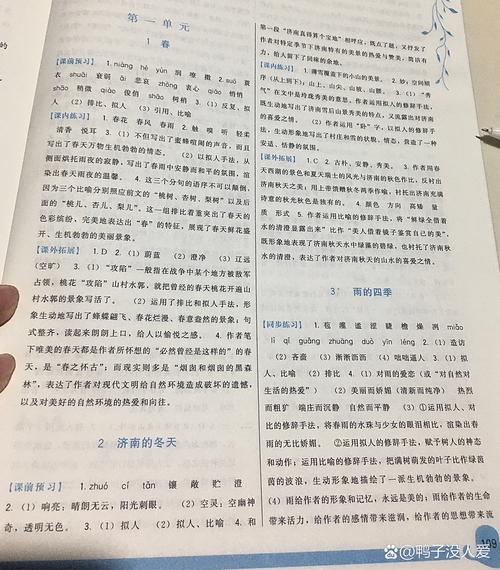 第一单元
1 春
【课前预习】1. niàng hé yùn 嘹 撒 2. suō 蓑
衣 shuāi 衰弱 āi 悲哀 zhōng 衷心 qiào 俏销
shāo 稍微 qiào 俊俏 shāo 树梢 3. (1) 反复、拟
人 (2) 排比、拟人 (3) 引用、比喻
【课内练习】1. 春花 春风 春雨 2. 触 嗅 听 轻柔
清香 悦耳 3. (1) 不但写出了蜜蜂喧闹的声音,而且
写出了春天万物生机勃勃的情态。 (2) 以拟人手法,从
侧面烘托雨夜的寂静,写出了春雨中安静而和平的氛围,渲
染出春天雨夜的温馨。 4. 这三个分句的语序不可以颠倒,
因为三个比喻分别照应前文的“桃树、杏树、梨树”以及后
面的“桃儿、杏儿、梨儿”。这一组排比着重突出了春天的
色彩缤纷,完美地表达出“春”的特征,展现了春天鲜花盛
开、生机勃勃的美丽景象。
【课外拓展】1. D 2. (1) 蔚蓝 (2) 澄净 (3) 辽远
(空旷) 3. (1) “攻陷”一般指在战争中某个地方被敌军
占领,桃花“攻陷”山村水郭,就把曾经的春天桃花开遍山
村水郭的景象写活了。 (2) 运用了排比和拟人手法,形
象生动地写出了蜂蝶翩飞、春花烂漫、春意盎然的景象;句
式整齐,读起来朗朗上口,给人以愉悦之感。 4. 作者笔
下唯美的春天都是作者所怀想的“必然曾经是这样的”的春
天,是“春之怀古”;而现实则多是“烟囱和烟囱的黑森
林”,表达了作者对现代文明给自然环境造成破坏的遗憾,
以及对美好的自然环境的热爱和向往。
2 济南的冬天
【课前预习】1. zhuó cí tǎn 镶 敞 贮 澄
2. (1) 响亮;晴朗无云,阳光刺眼。 (2) 空灵;空幽神
奇,透明无色。 3. (1) 拟人 (2) 拟人、比喻 4. 和
第一段“济南真得算个宝地”相呼应,既点了题,又抒发了
作者对特定季节下济南特有的美景的热爱与赞美,简洁有
力,给人留下了回味的余地。
【课内练习】1. 薄雪覆盖下的小山的美景。 2. 妙;空间顺
序(从上到下):山上、山尖、山坡、山腰。 3. (1) “秀
气”在文中是玲珑秀美的意思。作者运用拟人的修辞手法,
既生动地写出了济南雪后山景秀美的特点,又流露出对济南
的喜爱之情。 (2) 作者运用“卧”字,以拟人的修辞手
法,生动形象地写出了村庄和雪的状貌、情态,营造了一种
安适、恬静的氛围。
【课外拓展】1. C 2. 古朴、安静、秀美。 3. 作者用春
天西湖的景色和夏天瑞士的风光与济南的秋色作比,反衬出
济南秋天之美;用上帝馈赠秋冬两季作喻,衬托出济南充满
诗意的秋光秋色是独有的。 4. 颜色 方向 高矮 量
质 形式 5. 作者运用比喻的修辞手法,将“鲜绿全借着
水的清澄显露出来”比作“美人借着镜子鉴赏自己的美”,
既形象地表现了济南秋天水中绿藻的碧绿,也衬托了济南秋
水的清澄,表达了作者对济南秋天的山水的喜爱之情。
3* 雨的四季
【同步练习】1. 苞 灌 滥 涩 睫 檐 燥 冽 miǎo
lì qǐ guāng zhuàng duò yīn léng 2. (1) 造访
(2) 吝啬 (3) 淅淅沥沥 (4) 咄咄逼人 3. (1) 拟
人、比喻 (2) 排比 4. (1) 对雨的爱恋(或“对自然对
生活的热爱”) (2) 美丽而娇媚(清新而纯净) 热烈
而粗犷 端庄而沉静 自然而平静 (3) ①运用拟人、对
比的修辞手法,将春雨的水珠与少女的眼泪相比,渲染出春
雨的无比娇媚。 ②运用拟人的修辞手法,赋予树人的神态
和动作;运用比喻的修辞手法,把满树萌发的叶子比作绿茵
茵的波浪,生动形象地描绘了一派生机勃勃的景象。
(4) 雨给作者的形象和记忆,永远是美的;雨给作者的生命
带来活力,给作者的感情带来滋润,给作者的思想带来流
109
@鸭子没人爱